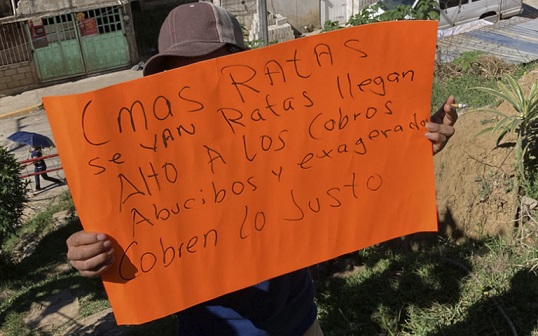 Cmas RAtAs
se VAN Ratas llegan
Alto A Los Cobros
Abucibos y exagerado
Cobren lo Justo